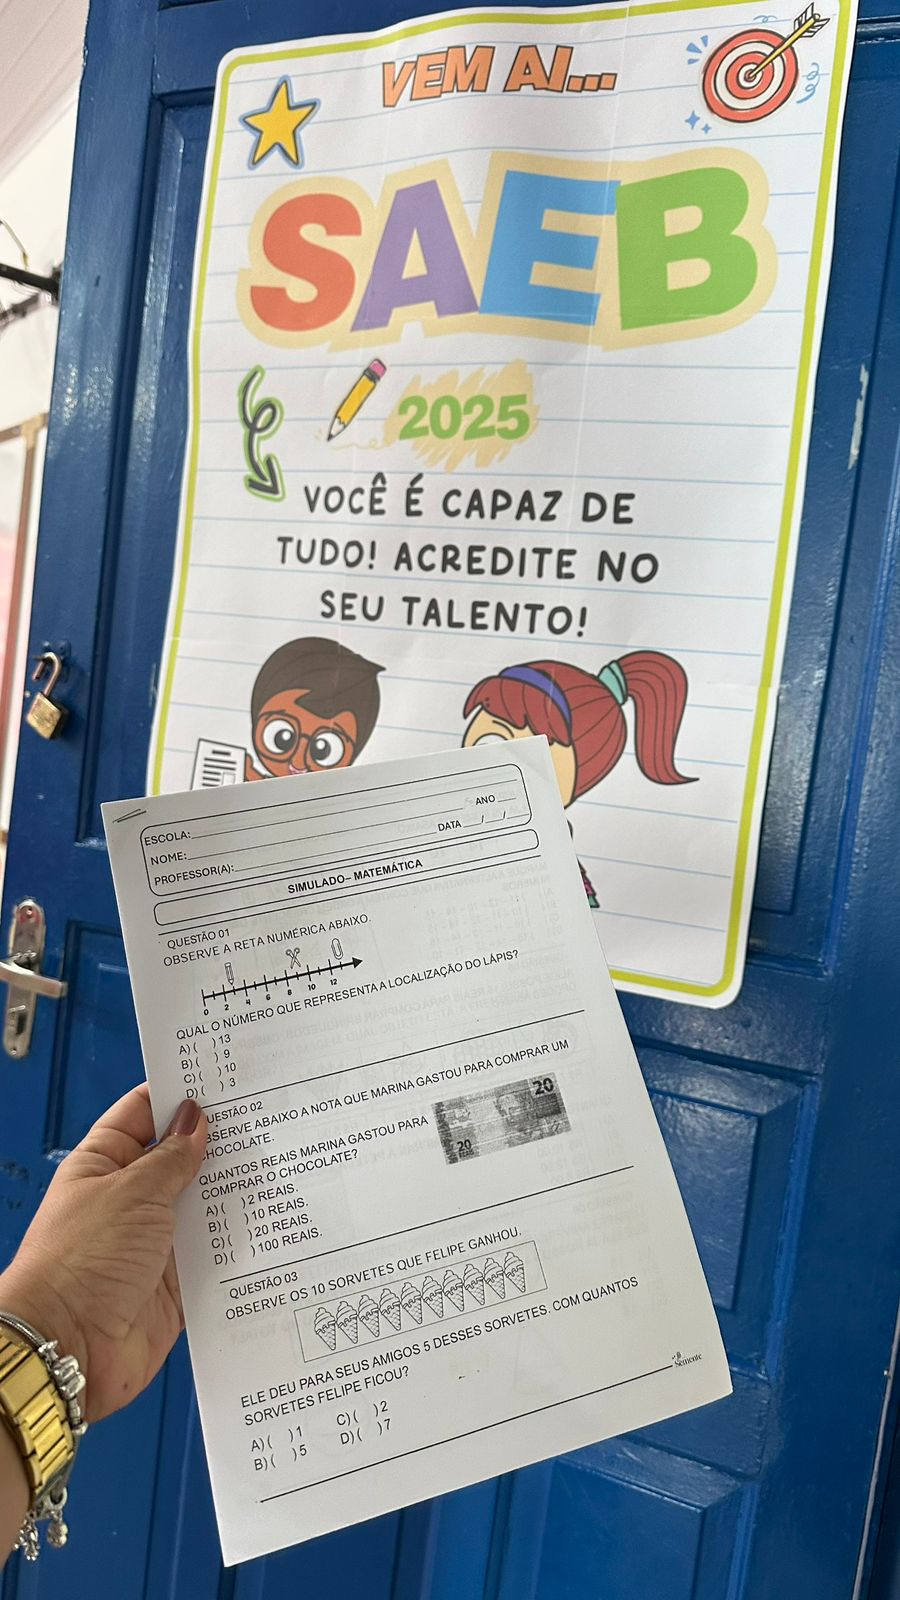 VEM AI...
SAEB
2025
VOCÊ É CAPAZ DE
TUDO! ACREDITE NO
SEU TALENTO!
ESCOLA:
ANO
NOME:
DATA / /
PROFESSOR(A):
SIMULADO– MATEMÁTICA
QUESTÃO 01
OBSERVE A RETA NUMÉRICA ABAIXO.
0 2 4 6 8 10 12
QUAL O NÚMERO QUE REPRESENTA A LOCALIZAÇÃO DO LÁPIS?
A) ( ) 13
B) ( ) 9
C) ( ) 10
D) ( ) 3
UESTÃO 02
BSERVE ABAIXO A NOTA QUE MARINA GASTOU PARA COMPRAR UM
CHOCOLATE.
20
20
REAIS
QUANTOS REAIS MARINA GASTOU PARA
COMPRAR O CHOCOLATE?
A) ( ) 2 REAIS.
B) ( ) 10 REAIS.
C) ( ) 20 REAIS.
D) ( ) 100 REAIS.
QUESTÃO 03
OBSERVE OS 10 SORVETES QUE FELIPE GANHOU.
ELE DEU PARA SEUS AMIGOS 5 DESSES SORVETES. COM QUANTOS
SORVETES FELIPE FICOU?
A) ( ) 1 C) ( ) 2
B) ( ) 5 D) ( ) 7
Semente